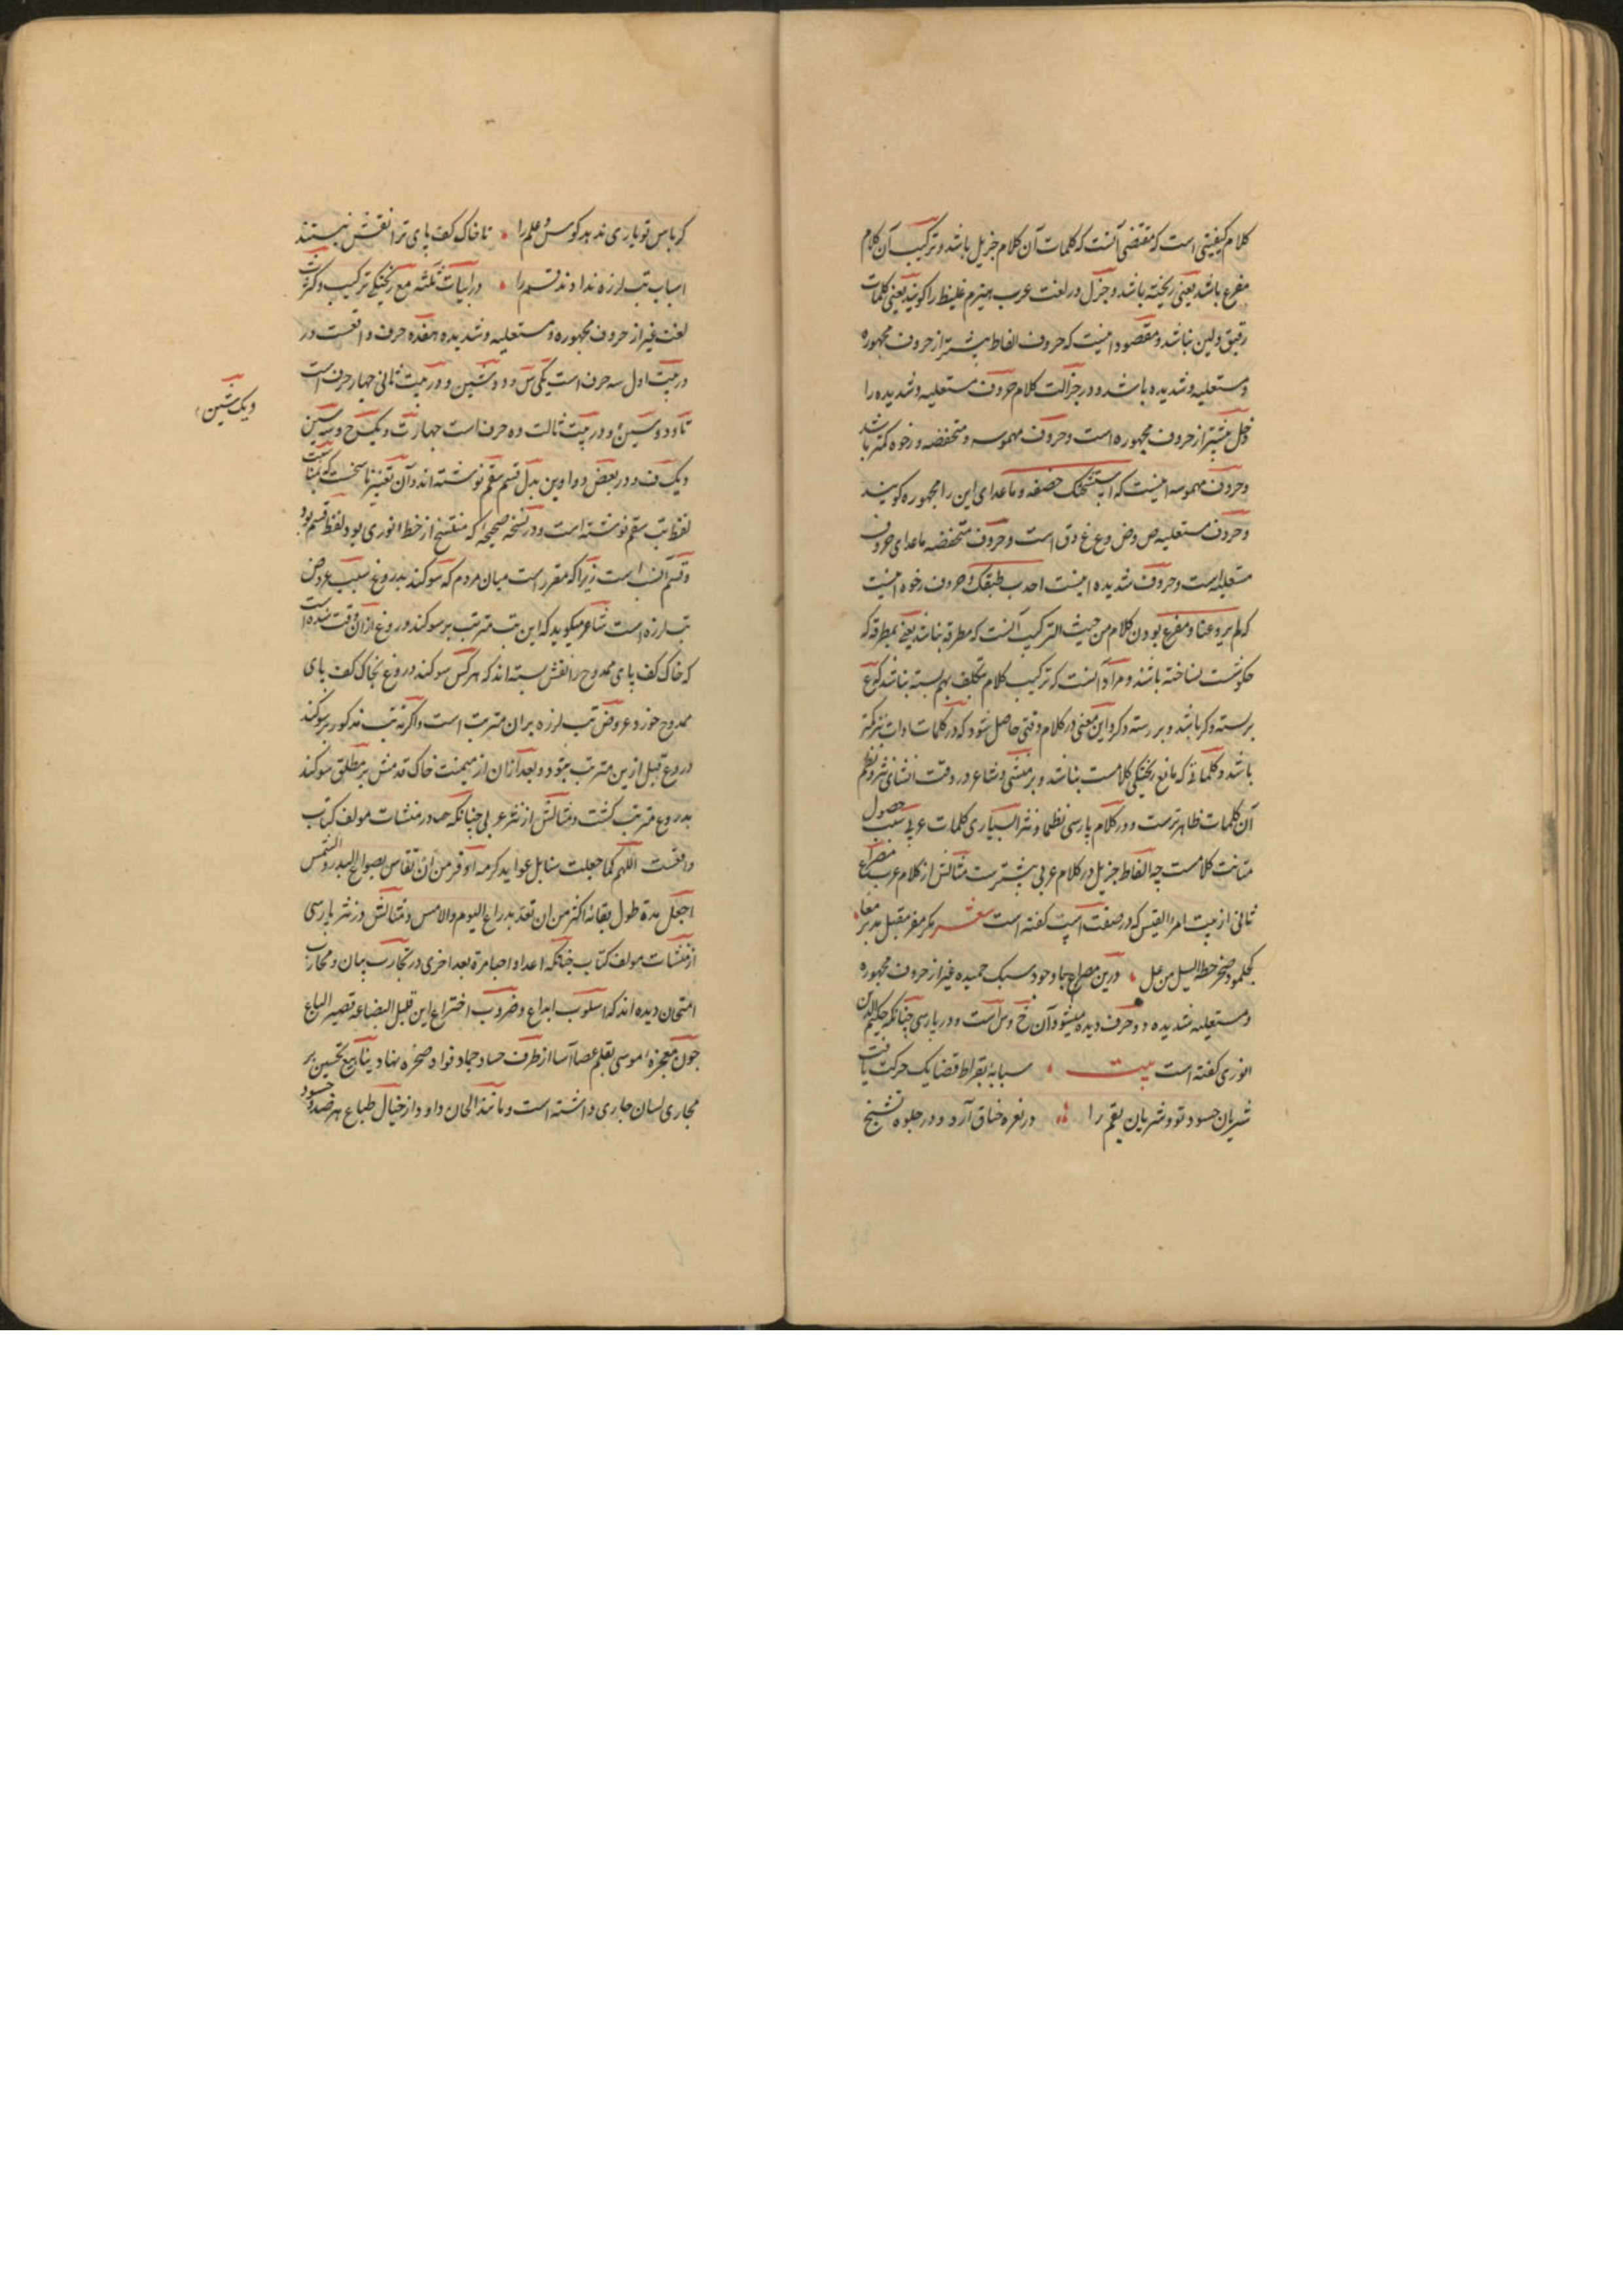 کلام کیفیتی است که مقتضی آنست که کلمات آن کلام جزیل باشد و ترکیب آن کلام
مفرغ باشد یعنی ریخته باشد و جزل در لغت عرب هیزم غلیظ را گویند یعنی کلمات
رقیق و لین نباشد و مقصود اینست که حروف الفاظ بیشتر از حروف مجهوره
و مستعلیه و شدیده باشد و در جزالت کلام حروف مستعلیه و شدیده را
دخل بیشتر از حروف مجهوره است و حروف مهموسه و منخفضه و رخوه کمتر باشد
و حروف مهموسه اینست که ستشحثک خصفه و ماعدای این را مجهوره کویند
و حروف مستعلیه ص وض وع غ وق است و حروف منخفضه ماعدای حروف
مستعلیه است و حروف شدیده اینست احدب طبقک و حروف رخوه اینست
که لم یروعنا و مفرغ بودن کلام من حیث الترکیب آنست که مطرقه نباشد یعنی بمطرقه که
چکوشست نساخته باشند و مراد آنست که ترکیب کلام بتکلف بهم بسته نباشد که ع
بر بسته دکر باشد و بر رسته دکر و این معنی در کلام وقتی حاصل شود که در کلمات ادات
باشد و کلماتی که مانع ریختکی کلامست نباشد و بر منشی و شاعر در وقت انشای نثر و نظم
آن کلمات ظاهرترست و در کلام پارسی نظما و نثرا بسیاری کلمات عربی سبب حصول
متانت کلامست چه الفاظ جزیل در کلام عربی بیشترست مثالش از کلام عرب مصراع
ثانی از بیت امرا القیس که در صفت اسپ کفته است شعر مکر مفر مقبل مدبر معا
کجلمود صخر حطه السیل من عل درین مصراع با وجود سبک حمیده غیر از حروف مجهوره
و مستعلیه شدیده دو حرف دیده میشود آن خ و س است و در پارسی چنانکه حکیم
انوری کفته است بیت سبابهٔ بقراط قضا یک حرکت یافت
شریان حسود تو و شریان بقم را در نعره خناق آرد و در جلوه تشنج
کر باس تو یاری ندهد کوس و علم را تا خاک کف پای ترا نقش نبستند
اسباب تب لرزه ندادند قسم را در ابیات ثلثه مع ریختکی ترکیب و کثرت
لغت غیر از حروف مجهوره و مستعلیه و شدیده هفده حرف واقعست در
در بیت اول سه حرف است یکی س و دو شین و در بیت ثانی چهار حرف است
تا و دو سین و در بیت ثالث ده حرف است چهار ت و یک خ و سه سین
و یک شین
و یک ف و در بعض دواوین بدل قسم سقم نوشته اند و آن تغییر ناسخست که بمناسبت
لفظ تب سقم نوشته است و در نسخه صحیحه که منتسخ از خط انوری بود لفظ قسم بود
و قسم آنسب است زیرا که مقرر است میان مردم که سوکند بدروغ سبب عروض
تب لرزه است شاعر میکوید که این تب مترتب بر سوکند دروغ از آن وقت شده است
که خاک کف پای ممدوح را نقش بسته اند که هر کس سوکند دروغ بخاک کف پای
ممدوح خورد عروض تب لرزه بر ان مترتب است و اکرنه تب مذکور بر سوکند
دروغ قبل ازین مترتب نبود و بعد از آن از میمنت خاک قدمش بر مطلق سوکند
بدروغ مترتب کشت و مثالش از نثر عربی چنانکه هم در منشات مولف کتاب
واقعست اللهم کما جعلت سنابل عواید کرمه اوفر من ان تقاس بصواع البدر و الشمس
اجعل مدة طول بقائه اکثر من ان تعد بذراع الیوم و الامس و مثالش در نثر پارسی
از منشات مولف کتاب چنانکه اعدا و احبا مرة بعد اخری در تجارب بیان و مجارب
امتحان دیده اند که اسلوب ابداع و ضروب اختراع این قلیل البضاعه قصیر الباع
چون معجزه موسی بقلم عصا آسا از طرف حساد جماد فواد صخره نهاد ینابیع تحسین بر
مجاری لسان جاری داشته است و مانند الحان داود از خیال طباع هر ضد و حسود